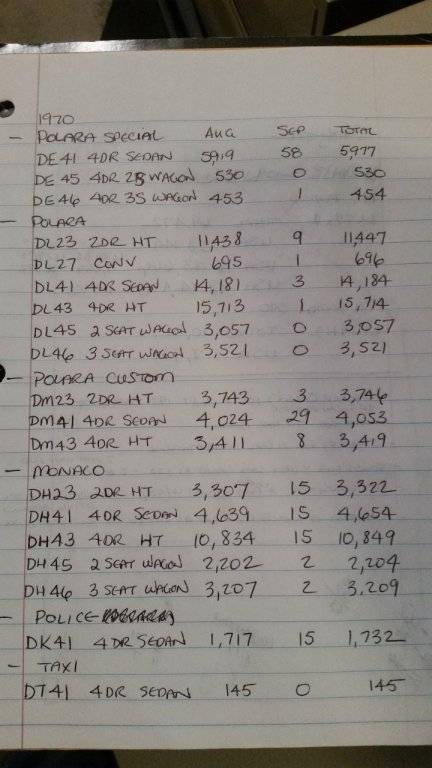 1970
- POLARA SPECIAL AUG SEP TOTAL
DE41 4DR SEDAN 5,919 58 5,977
DE 45 4DR 2S WAGON 530 0 530
DE46 4DR 3S WAGON 453 1 454
- POLARA
DL23 2DR HT 11,438 9 11,447
DL27 CONV 695 1 696
DL41 4DR SEDAN 14,181 3 14,184
DL43 4DR HT 15,713 1 15,714
DL45 2 SEAT WAGON 3,057 0 3,057
DL46 3 SEAT WAGON 3,521 0 3,521
- POLARA CUSTOM
DM23 2DR HT 3,743 3 3,746
DM41 4DR SEDAN 4,024 29 4,053
DM43 4DR HT 3,411 8 3,419
- MONACO
DH23 2DR HT 3,307 15 3,322
DH41 4DR SEDAN 4,639 15 4,654
DH43 4DR HT 10,834 15 10,849
DH45 2 SEAT WAGON 2,202 2 2,204
DH46 3 SEAT WAGON 3,207 2 3,209
- POLICE
DK41 4DR SEDAN 1,717 15 1,732
- TAXI
DT41 4DR SEDAN 145 0 145